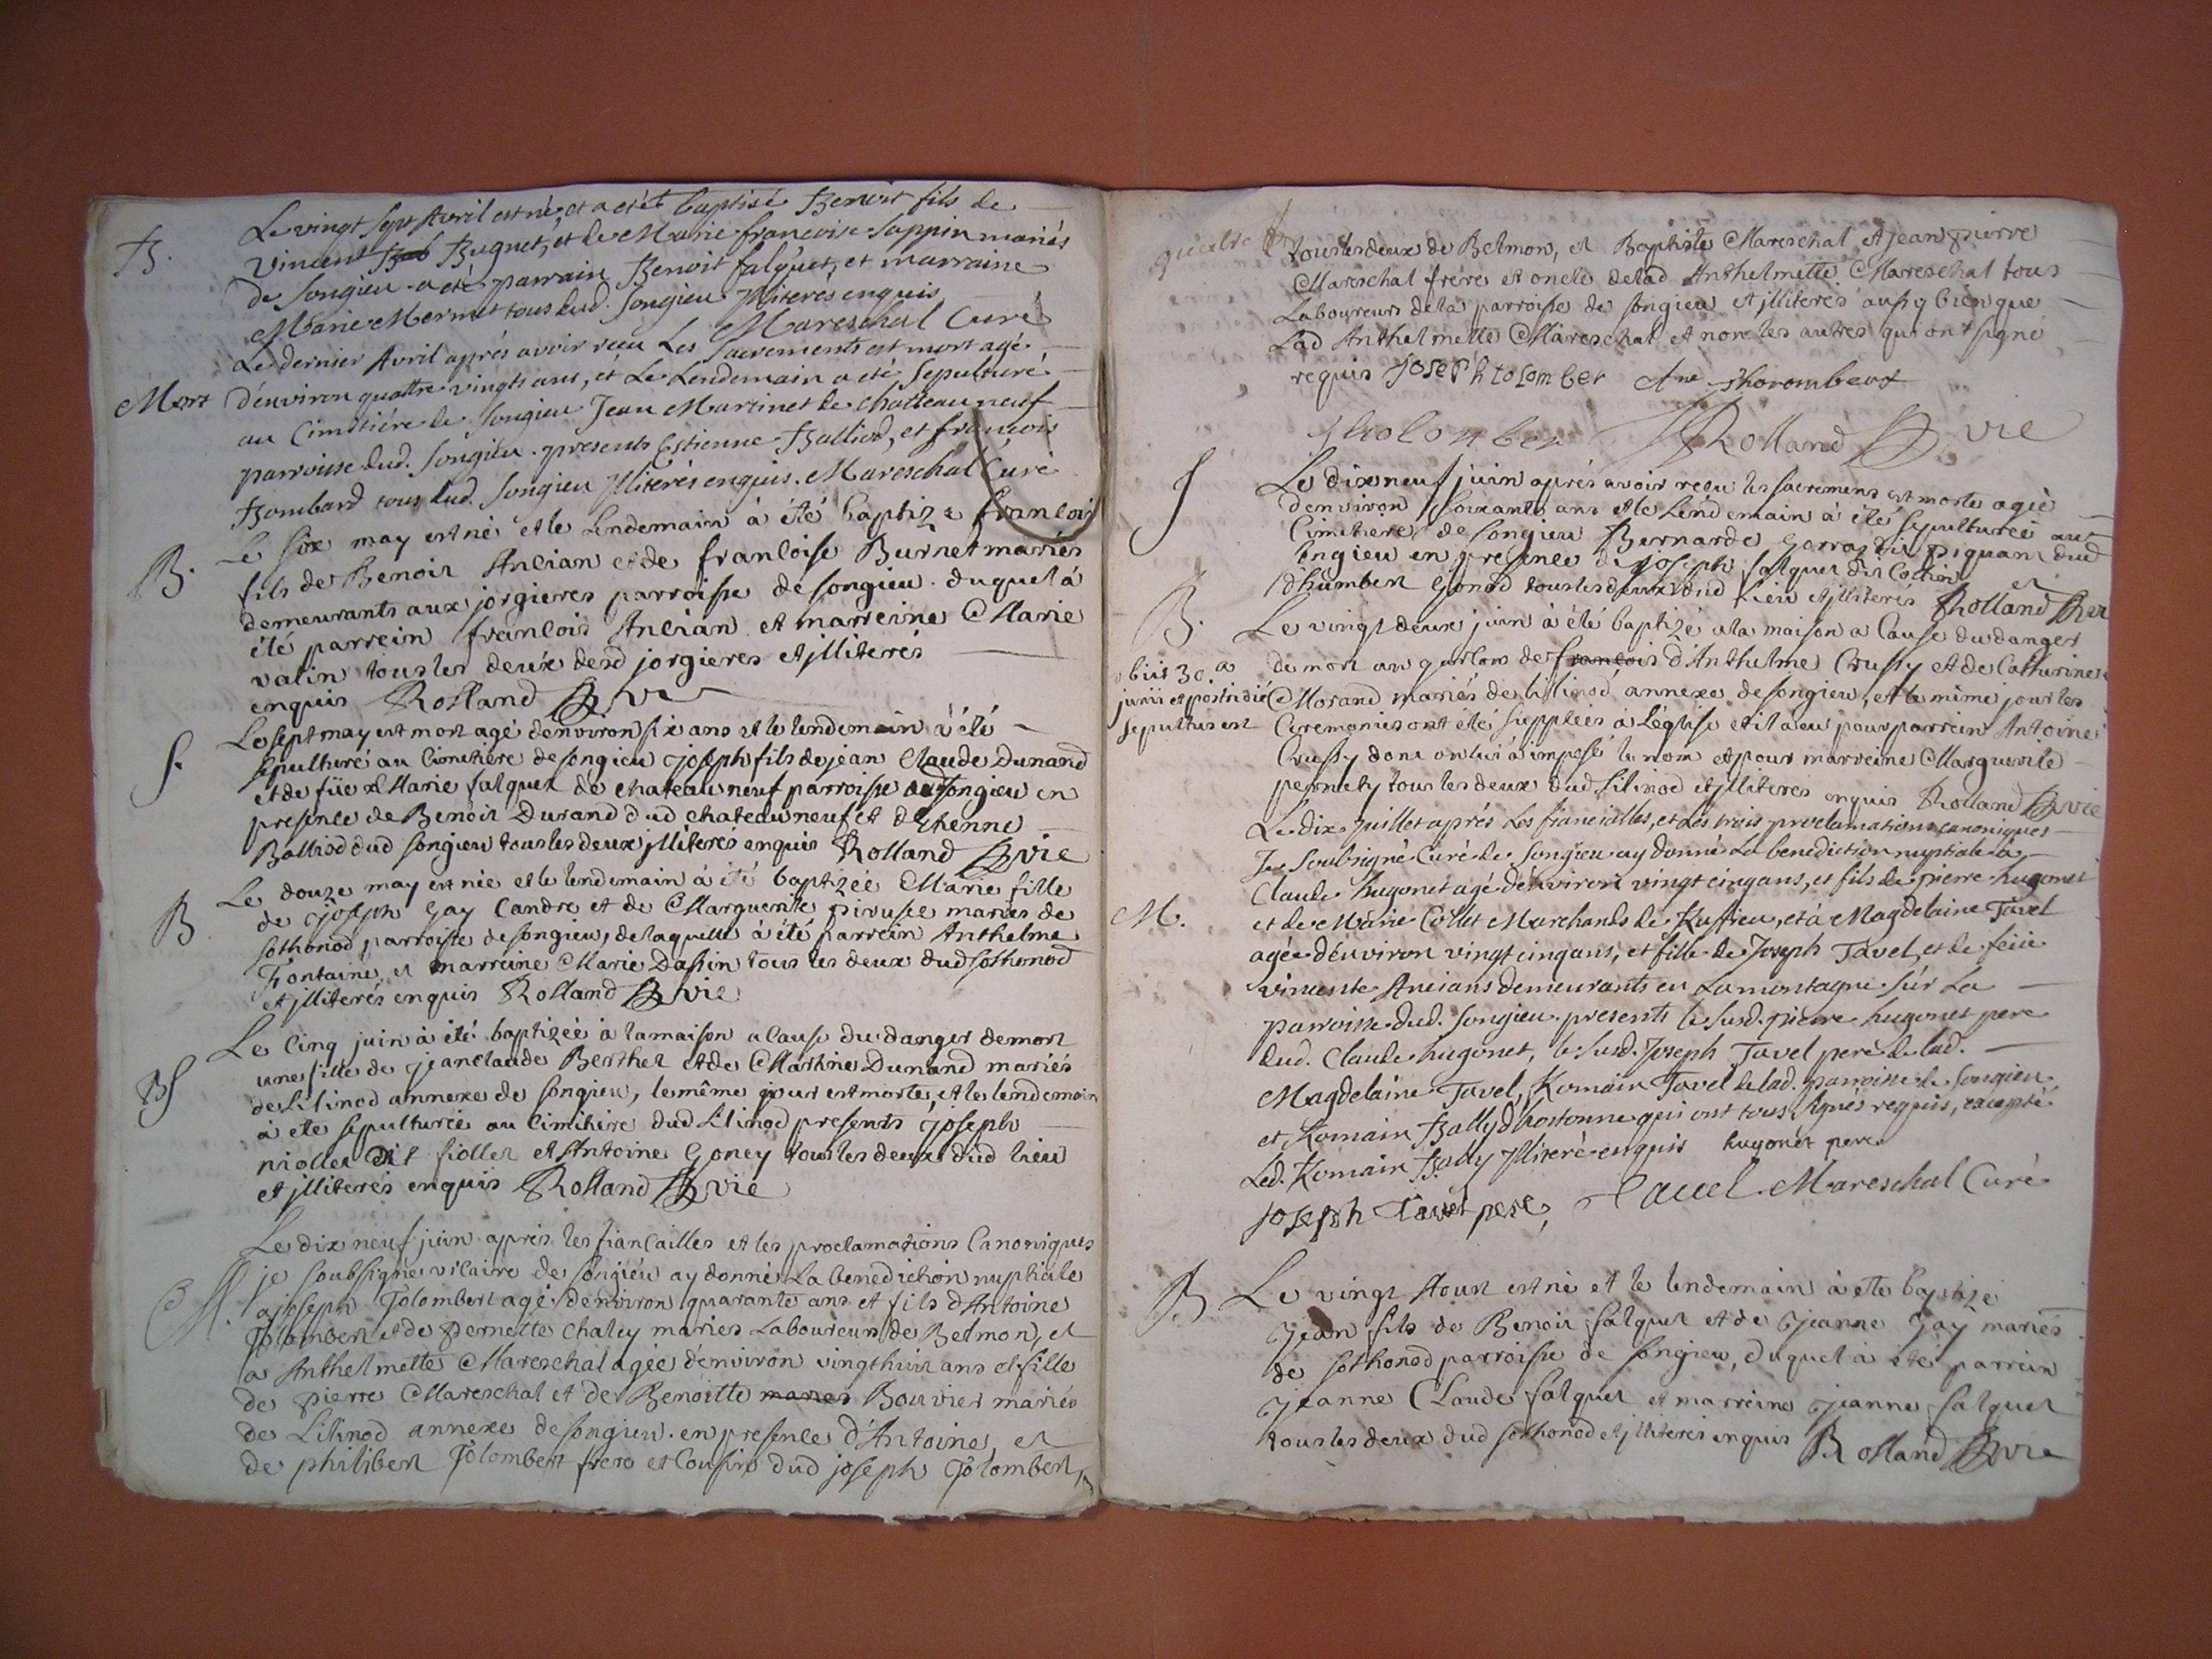 B. Le vingt sept Avril est né, et a eté baptisé Benoit fils de
Vincent Bugnet, et de Marie francoise Sappin mariés
de Songieu a eté parrain Benoit falquet, et marraine
Marie Mermet tous dud. Songieu Illiterés enquis
Mareschal Curé
Le dernier Avril aprés avoir recu Les Sacrements est mort agé
Mort d'environ quattre vingts ans, et Le Lendemain a eté Sepulturé
au Cimetiére de Songieu Jean Martinet de chatteauneuf
parroisse dud. Songieu. presents Estienne Balliod, et francois
Bombard tous dud. Songieu Illiterés enquis. Mareschal Curé
B. Le six may est né et le Lendemain à été baptize francois
fils de Benoit Ancian et de francoise Burnet mariés
demeurants aux jorgieres parroisse de songieu. duquel á
été parrein francois Ancian et marreine Marie
valin tous les deux desd jorgieres et jlliterés
enquis Rolland vic
S. Le sept may est mort agé denviron six ans et le lendemain à été
sepulturé au Cimetiére de songieu joseph fils de jean Claude Dunand
et de füe Marie falquet de chateauneuf parroisse de songieu en
presence de Benoit Durand dud chateauneuf et dEthenne
Balliod dud songieu tous les deux jlliterés enquis Rolland vic
B Le douze may est née et le lendemain à été baptizée Marie fille
de joseph Gay Candre et de Marguerite pivusee mariés de
sothonod parroisse de songieu, de laquelle à été parrein Anthelme
Fontaine et marreine Marie Dassin tous les deux dud sothonod
et jlliterés enquis Rolland vic
Le Cinq juin à été baptizée à la maison a Cause du danger de mort
BS une fille de jeanclaude Berthet et de Marthine Dunand mariés
de Lilinod annexe de songieu, le même jour est morte, et le lendemain
à ete sepulturée au Cimitiere dud Lilinod presents joseph
niollet dit fiollet et Antoine Goney tous les deux dud lieu
et jlliterés enquis Rolland vic
Le dix neuf juin aprés les fiancailles et les proclamations Canoniques
M. je soubsigné vicaire de songieu ay donné La benediction nuptiale
a joseph Tolombert agé denviron quarante ans et fils d'Antoine
Tolombert et de Pernette Chaley mariés Laboureurs de Belmon, et
a Anthelmette Mareschal agée d'environ vingthuit ans et fille
de Pierre Mareschal et de Benoitte maries Bouvier mariés
de Lilinod annexe de songieu. en presence d'Antoine, et
de philibert Tolombert frere et Cousin dud joseph Tolombert,
tous les deux de Belmon, et Baptiste Mareschal et jean pierre
Mareschal frére et oncle de lad Anthelmette Mareschal tous
Laboureurs de la parroisse de songieu et jlliterés aussy bien que
Lad Anthelmette Mareschal et non les autres qui ont signe
requis joseph tolomber Ane thorombert
tholomber Rolland vic
S Le dix neuf juin aprés avoir recu les sacremens est morte agée
denviron soixante ans et le Lendemain à été sepulturée au
Cimetiere de songieu Bernarde gorraz dit piquant dud
songieu en presence de joseph falquet dit Collin et
d'humbert Gonod tous les deux dud Lieu et jlliterés Rolland vic
B. Le vingt deux juin à été baptizé a la maison a Cause du danger
obiit 30.a de mort un garcon de francois d'Anthelme Crussy et de Catherine
junii et postridie Morand mariés de Lilinod annexe de songieu, et le même jour les
sepultus est Ceremonies ont été supplées à L'église et il a eu pour parrein Antoine
Crussy dont on lui à imposé le nom et pour marreine Marguerite
pernety tous les deux dud Lilinod et jlliteres enquis Rolland vic
Le dix Juillet aprés Les fianciailles, et Les trois proclamations canoniques
Je Soubsigné Curé de Songieu ay donné La benediction nuptiale à
Claude hugonet agé d'environ vingt cinq ans, et fils de pierre hugonet
M. et de Marie Collet Marchands de Ruffieu, et à Magdelaine Tavel
agée d'environ vingt cinq ans, et fille de Joseph Tavel, et de feüe
vincente Ancians demeurants en La montagne sur La
parroisse dud. Songieu. presents le susd. pierre hugonet pere
dud. Claude hugonet, le susd. Joseph Tavel pere de lad.
Magdelaine Tavel, Romain Tavel de lad. parroisse de Songieu
et Romain Bally d'hostonne qui ont tous signés requis, excepté
Led. Romain Bally Illiteré enquis hugonet pere
joseph Tavel pere, Tavel Mareschal Curé
B Le vingt Aout est né et le lendemain à ete baptize
jean fils de Benoit falquet et de jeanne Gay mariés
de sothonod parroisse de songieu, duquel à été parrein
jeanne Claude falquet et marreine jeanne falquet
tous les deux dud sothonod et jlliterés enquis Rolland vic